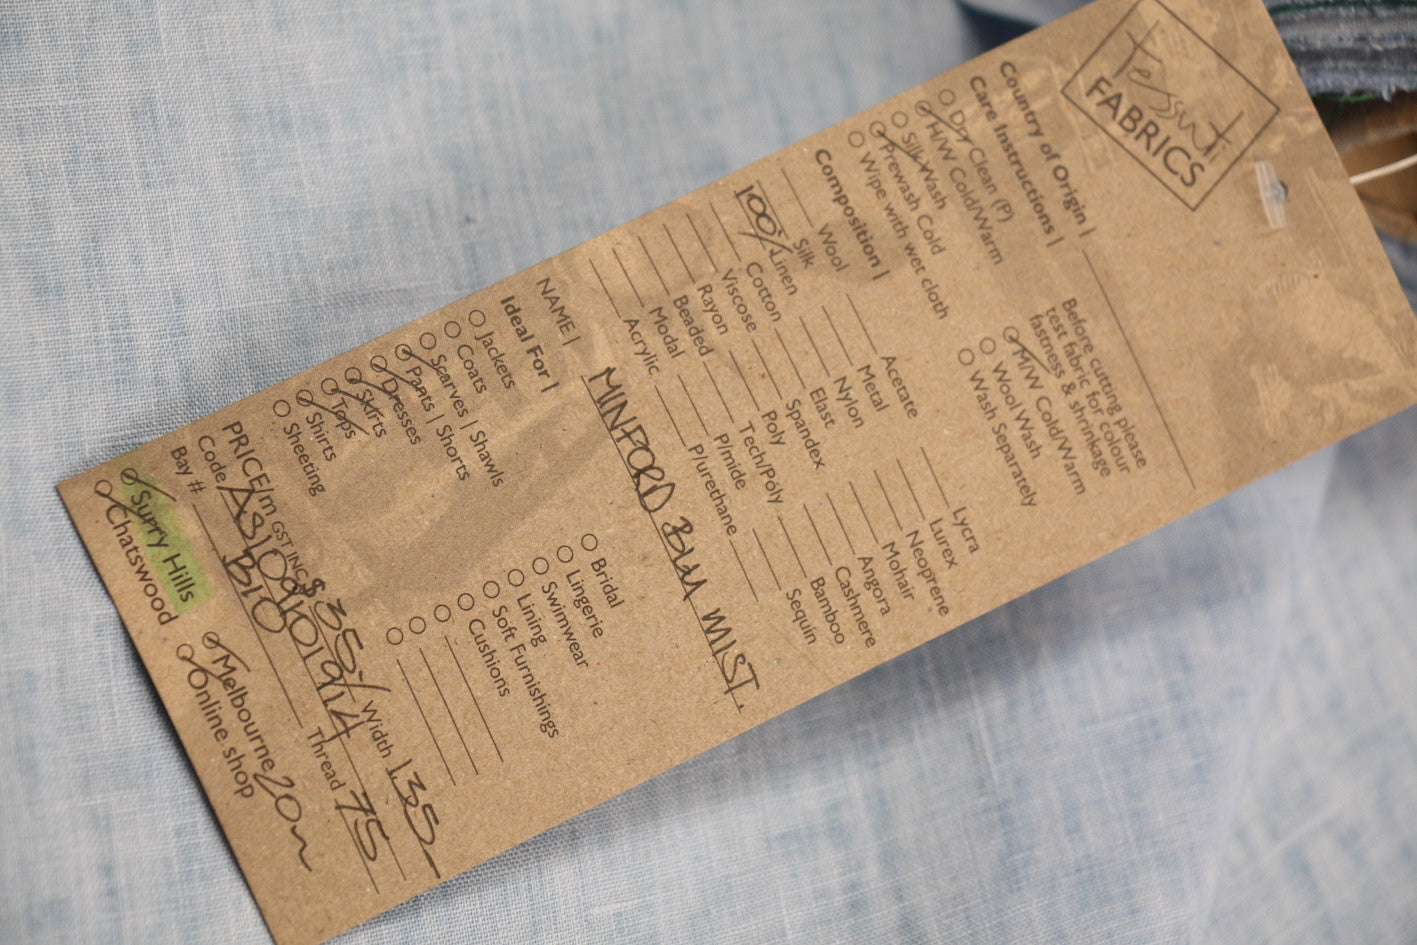 tessuti
FABRICS
Country of Origin |
Care Instructions |
Dry Clean (P)
H/W Cold/Warm
Silk Wash
Prewash Cold
Wipe with wet cloth
Before cutting please
test fabric for colour
fastness & shrinkage
M/W Cold/Warm
Wool Wash
Wash Separately
Composition |
Wool
Silk
100% Linen
Cotton
Viscose
Rayon
Beaded
Modal
Acrylic
Acetate
Metal
Nylon
Elast
Spandex
Poly
Tech/Poly
P/mide
P/urethane
Lycra
Lurex
Neoprene
Mohair
Angora
Cashmere
Bamboo
Sequin
NAME | MINFORD BLU MIST.
Ideal For |
Jackets
Coats
Scarves | Shawls
Pants | Shorts
Dresses
Skirts
Tops
Shirts
Sheeting
Bridal
Lingerie
Swimwear
Lining
Soft Furnishings
Cushions
PRICE/m GST INC $ 35-/ Width 135
Code Thread 75
Bay # B10
Surry Hills
Chatswood
Melbourne 20m
Online shop